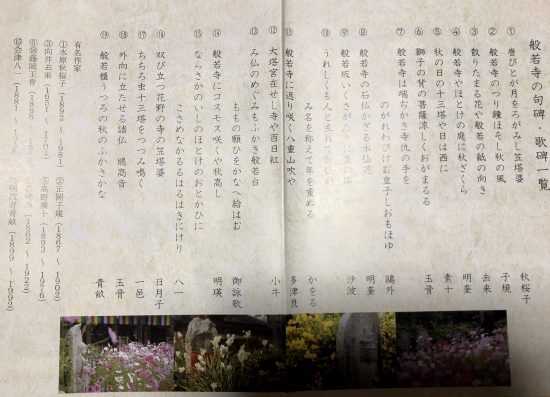 般若寺の句碑・歌碑一覧
① 唐びとが月をろがみし笠塔婆 秋桜子
② 般若寺のつり鐘ほそし秋の風 子規
③ 散りたまる花や般若の紙の向き 去来
④ 般若寺やほとけの庭に秋ざくら 明奎
⑤ 秋の日の十三塔や日は西に 素十
⑥ 獅子の背の菩薩涼しくおがまるる 玉骨
⑦ 般若寺は端ぢかき寺仇の手を
のがれわびけむ皇子しおもほゆ 鴎外
⑧ 般若寺の石仏かざる水仙花 明奎
⑨ 般若坂いくさが 沙波
⑩ うれしくも人と生れて
み名を称えて年を重ぬる かをる
⑪ 般若寺に返り咲く八重山吹や 多津良
⑫ 大塔宮在せし寺や百日紅 小牛
⑬ み仏のめぐみもふかき般若台
ももの願ひをかなへ給はむ 御詠歌
⑭ 般若寺にコスモス咲くや秋高し 明瑛
⑮ ならさかのいしのほとけのおとがひに
こさめながるるはるはきにけり 八一
⑯ 双び立つ花野の寺の笠塔婆 日月子
⑰ ちちろ虫十三塔をつつみ鳴く 一邑
⑱ 外向に立たせる諸仏 鵙高音 玉骨
⑲ 般若櫃うつろの秋のふかさかな 青畝
有名作家
①水原秋桜子(1892〜1981) ②正岡子規(1867〜1902)
③向井去来(1651〜1704) ⑤高野素十(1893〜1976)
⑥⑱藤岡玉骨(1888 (1862〜1922)
⑮会津八一(1881 阿波野青畝(1899〜1992)